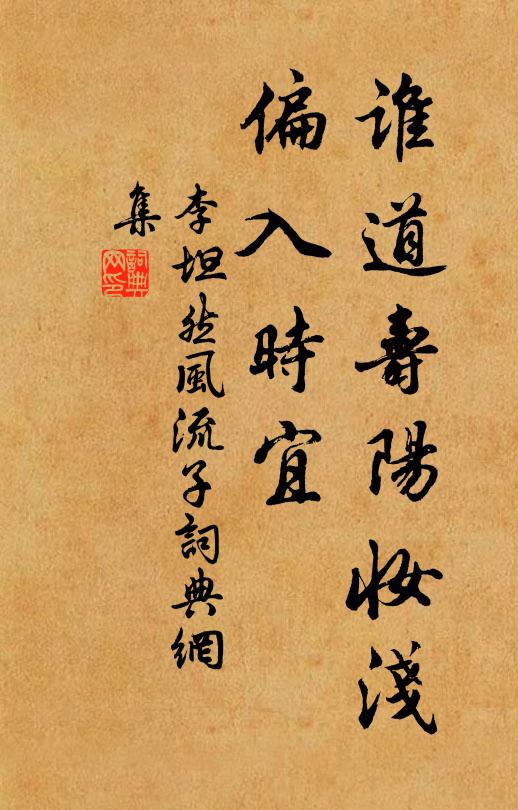 誰道壽陽妝淺
偏入時宜
李坦然風流子詞典網
集
詞典
网印